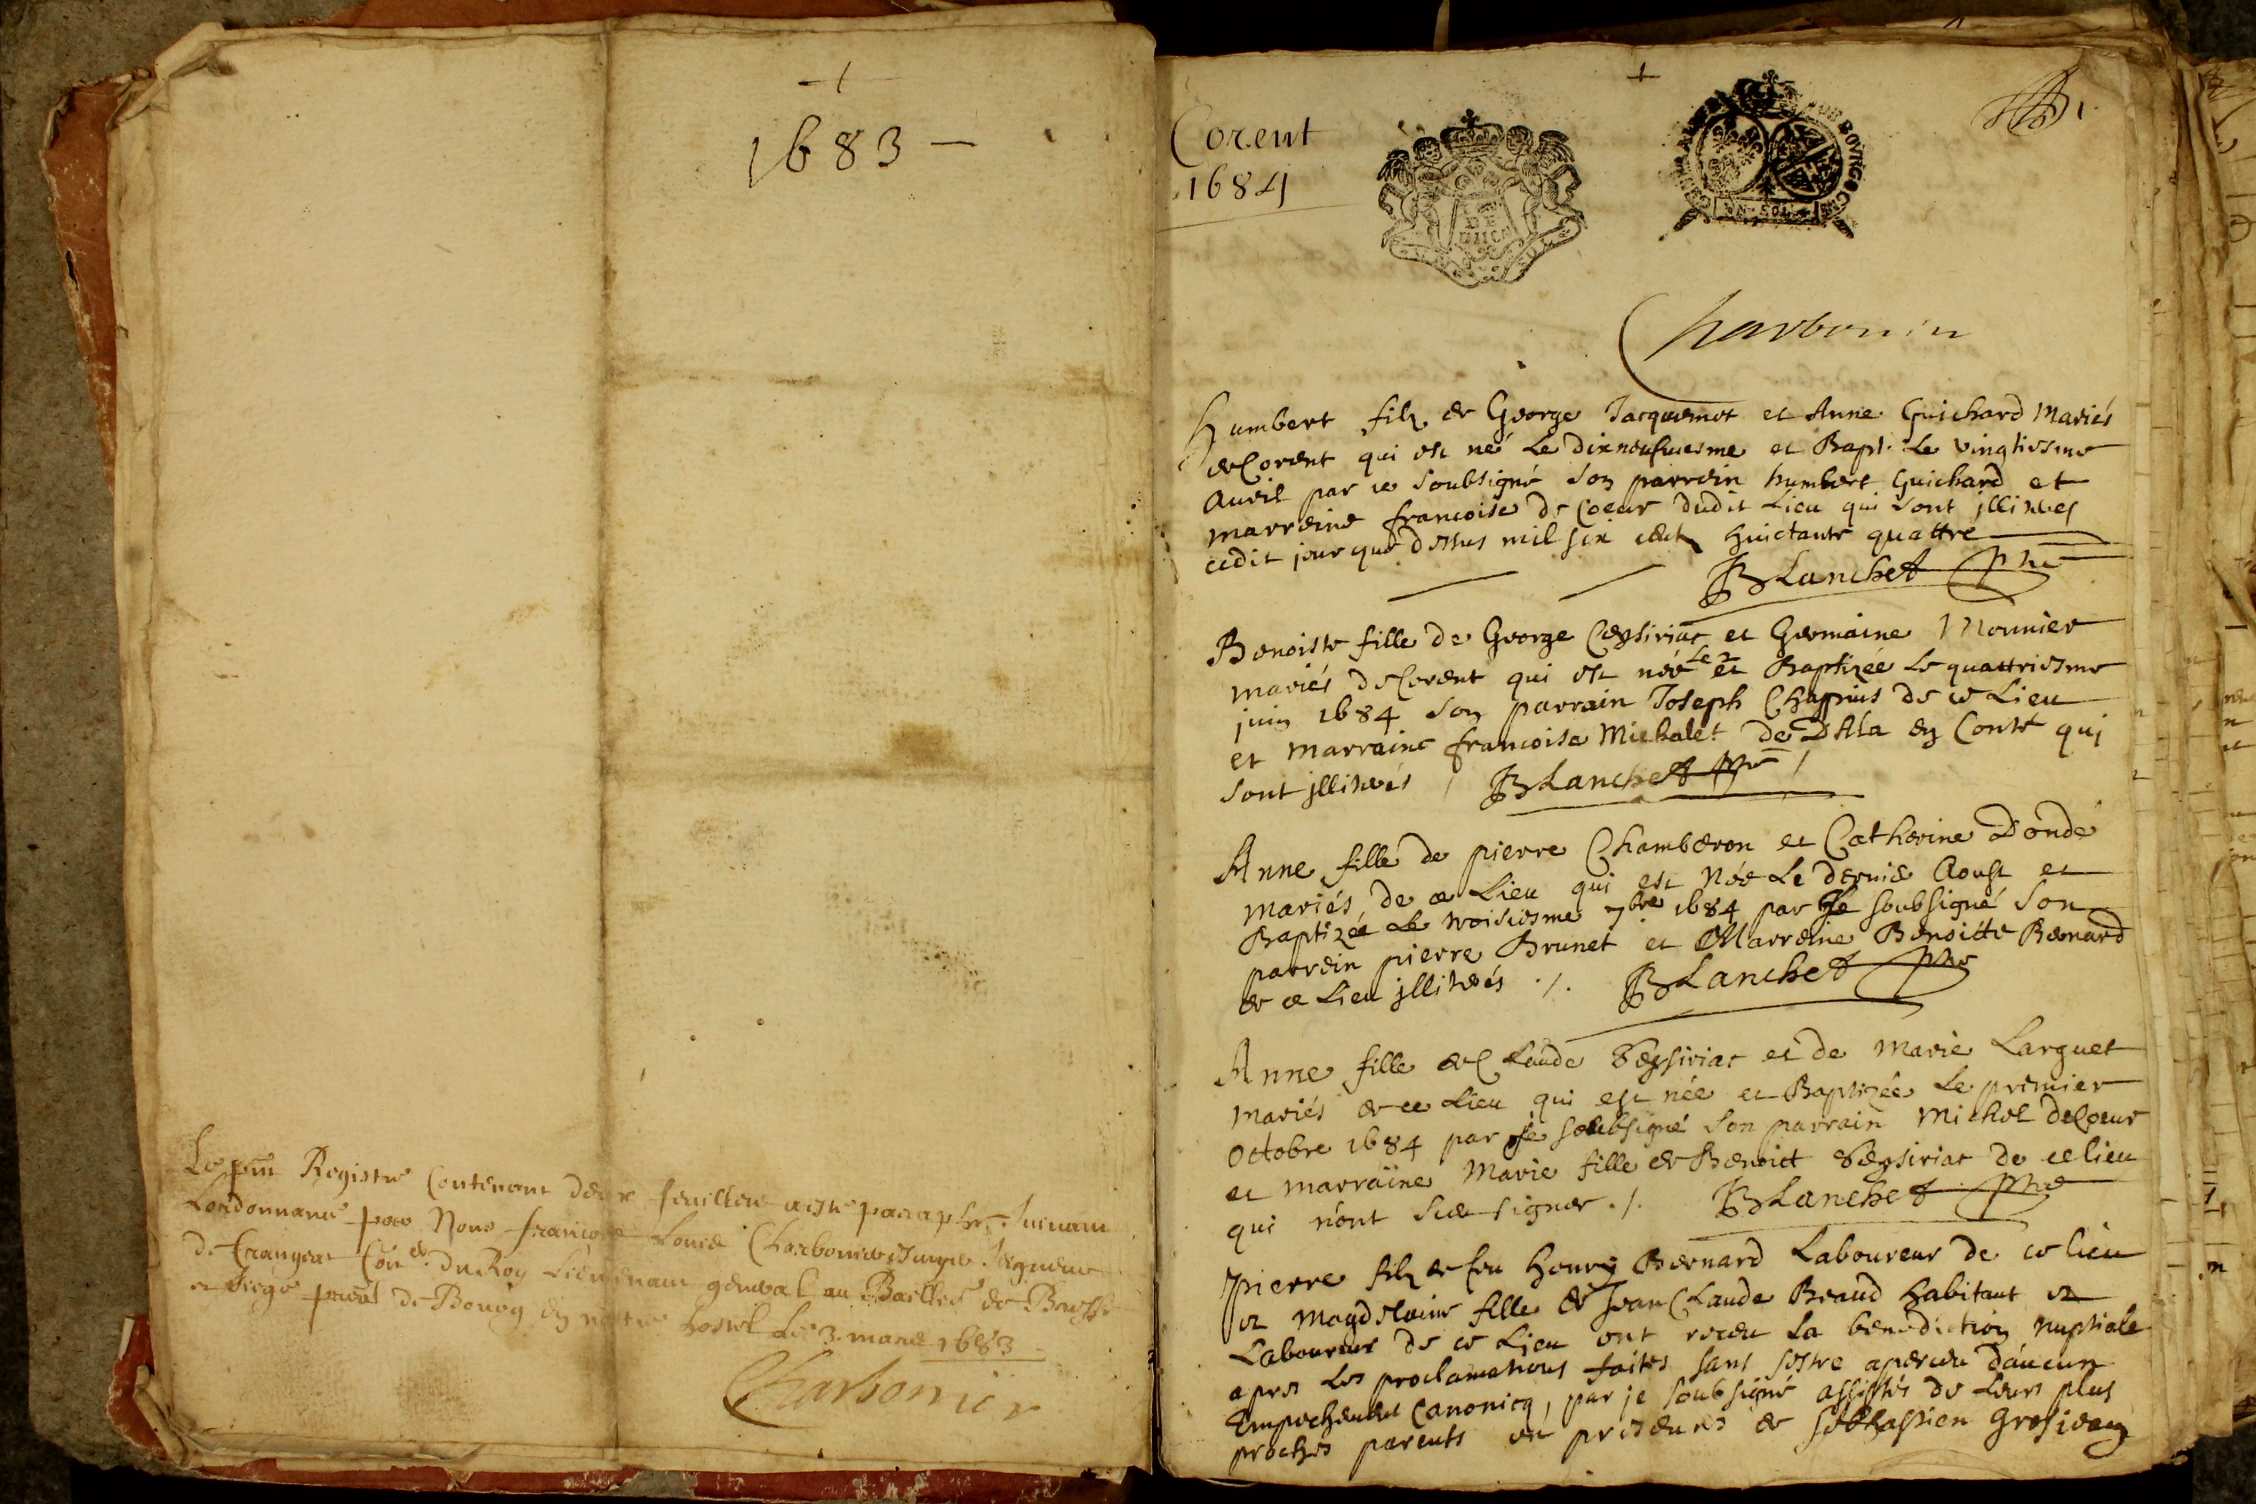 1683
Le pnt Registre Contenant deux feuillets a esté paraphé suivant
Lordonnance par Nous francois Louis Charbonnier Seigneur
de Crangeat Coner. Du Roy Lieutenant general au Bailliage de Bresse
et siege pnal de Bourg en nostre hostel Le 3 mars 1683
Charbonier
Corent
1684
1.
GEN. ALEX
BOVRG
UN SOL
Charbonier
Humbert filz de George Jacquemot et Anne Guichard Mariés
de Corent qui est né Le dixneufuiesme et Bapt. Le vingtiesme
Auril par je soubsigné son parrein humbert Guichard et
marreine francoise de Coeur dudit Lieu qui sont illitrés
cedit jour que dessus mil six cent huictante quattre
BLanchet pbre
Benoiste fille de George Ceysiriat et Germaine Monnier
mariés de Corent qui est née Le et Baptizée Le quattriesme
juin 1684 son parrain Joseph Chappuis de ce Lieu
et marraine francoise Michalet de DAla en Conté qui
sont jllitrés / BLanchet pbre /
Anne fille de pierre Chamberon et Catherine Dondé
mariés de ce Lieu qui est Née Le dernie Aoust et
Baptizée Le troisiesme 7bre 1684 par Je soubsigné son
parrein pierre Brunet et Marreine Benoitte Bernard
de ce Lieu jllitrés ./. BLanchet pbre
Anne fille de Claude Seysiriat et de Marie Larguet
mariés de ce Lieu qui est née et Baptizée Le premier
Octobre 1684 par je soubsigné son parrain Michel deCoeur
et marraine Marie fille de Benoict Seysiriat de ce lieu
qui n'ont sceu signer ./. BLanchet pbre
pierre filz de feu Henry Bernard Laboureur de ce lieu
et Magdelaine fille de Jean Claude Beaud habitant et
Laboureur de ce Lieu ont receu la benediction nuptiale
apres Les proclamations faites sans s'estre aperceu d'aucun
Empechement Canonicq, par je soubsigné assistés de Leurs plus
proches parents en presence de Sebastien Grosjean